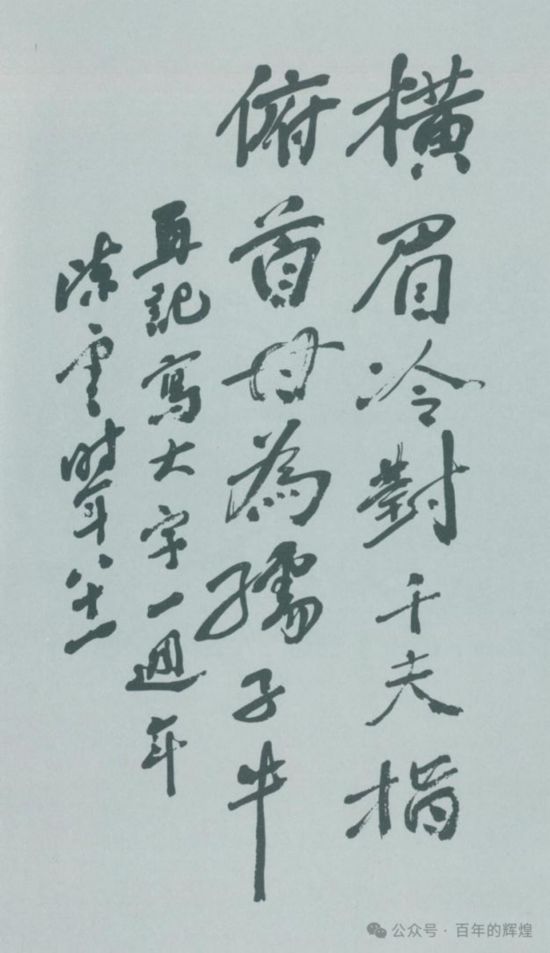 橫眉冷對千夫指
俯首甘為孺子牛
再記寫大字一週年
陳雲時年八十一
公众号 · 百年的辉煌